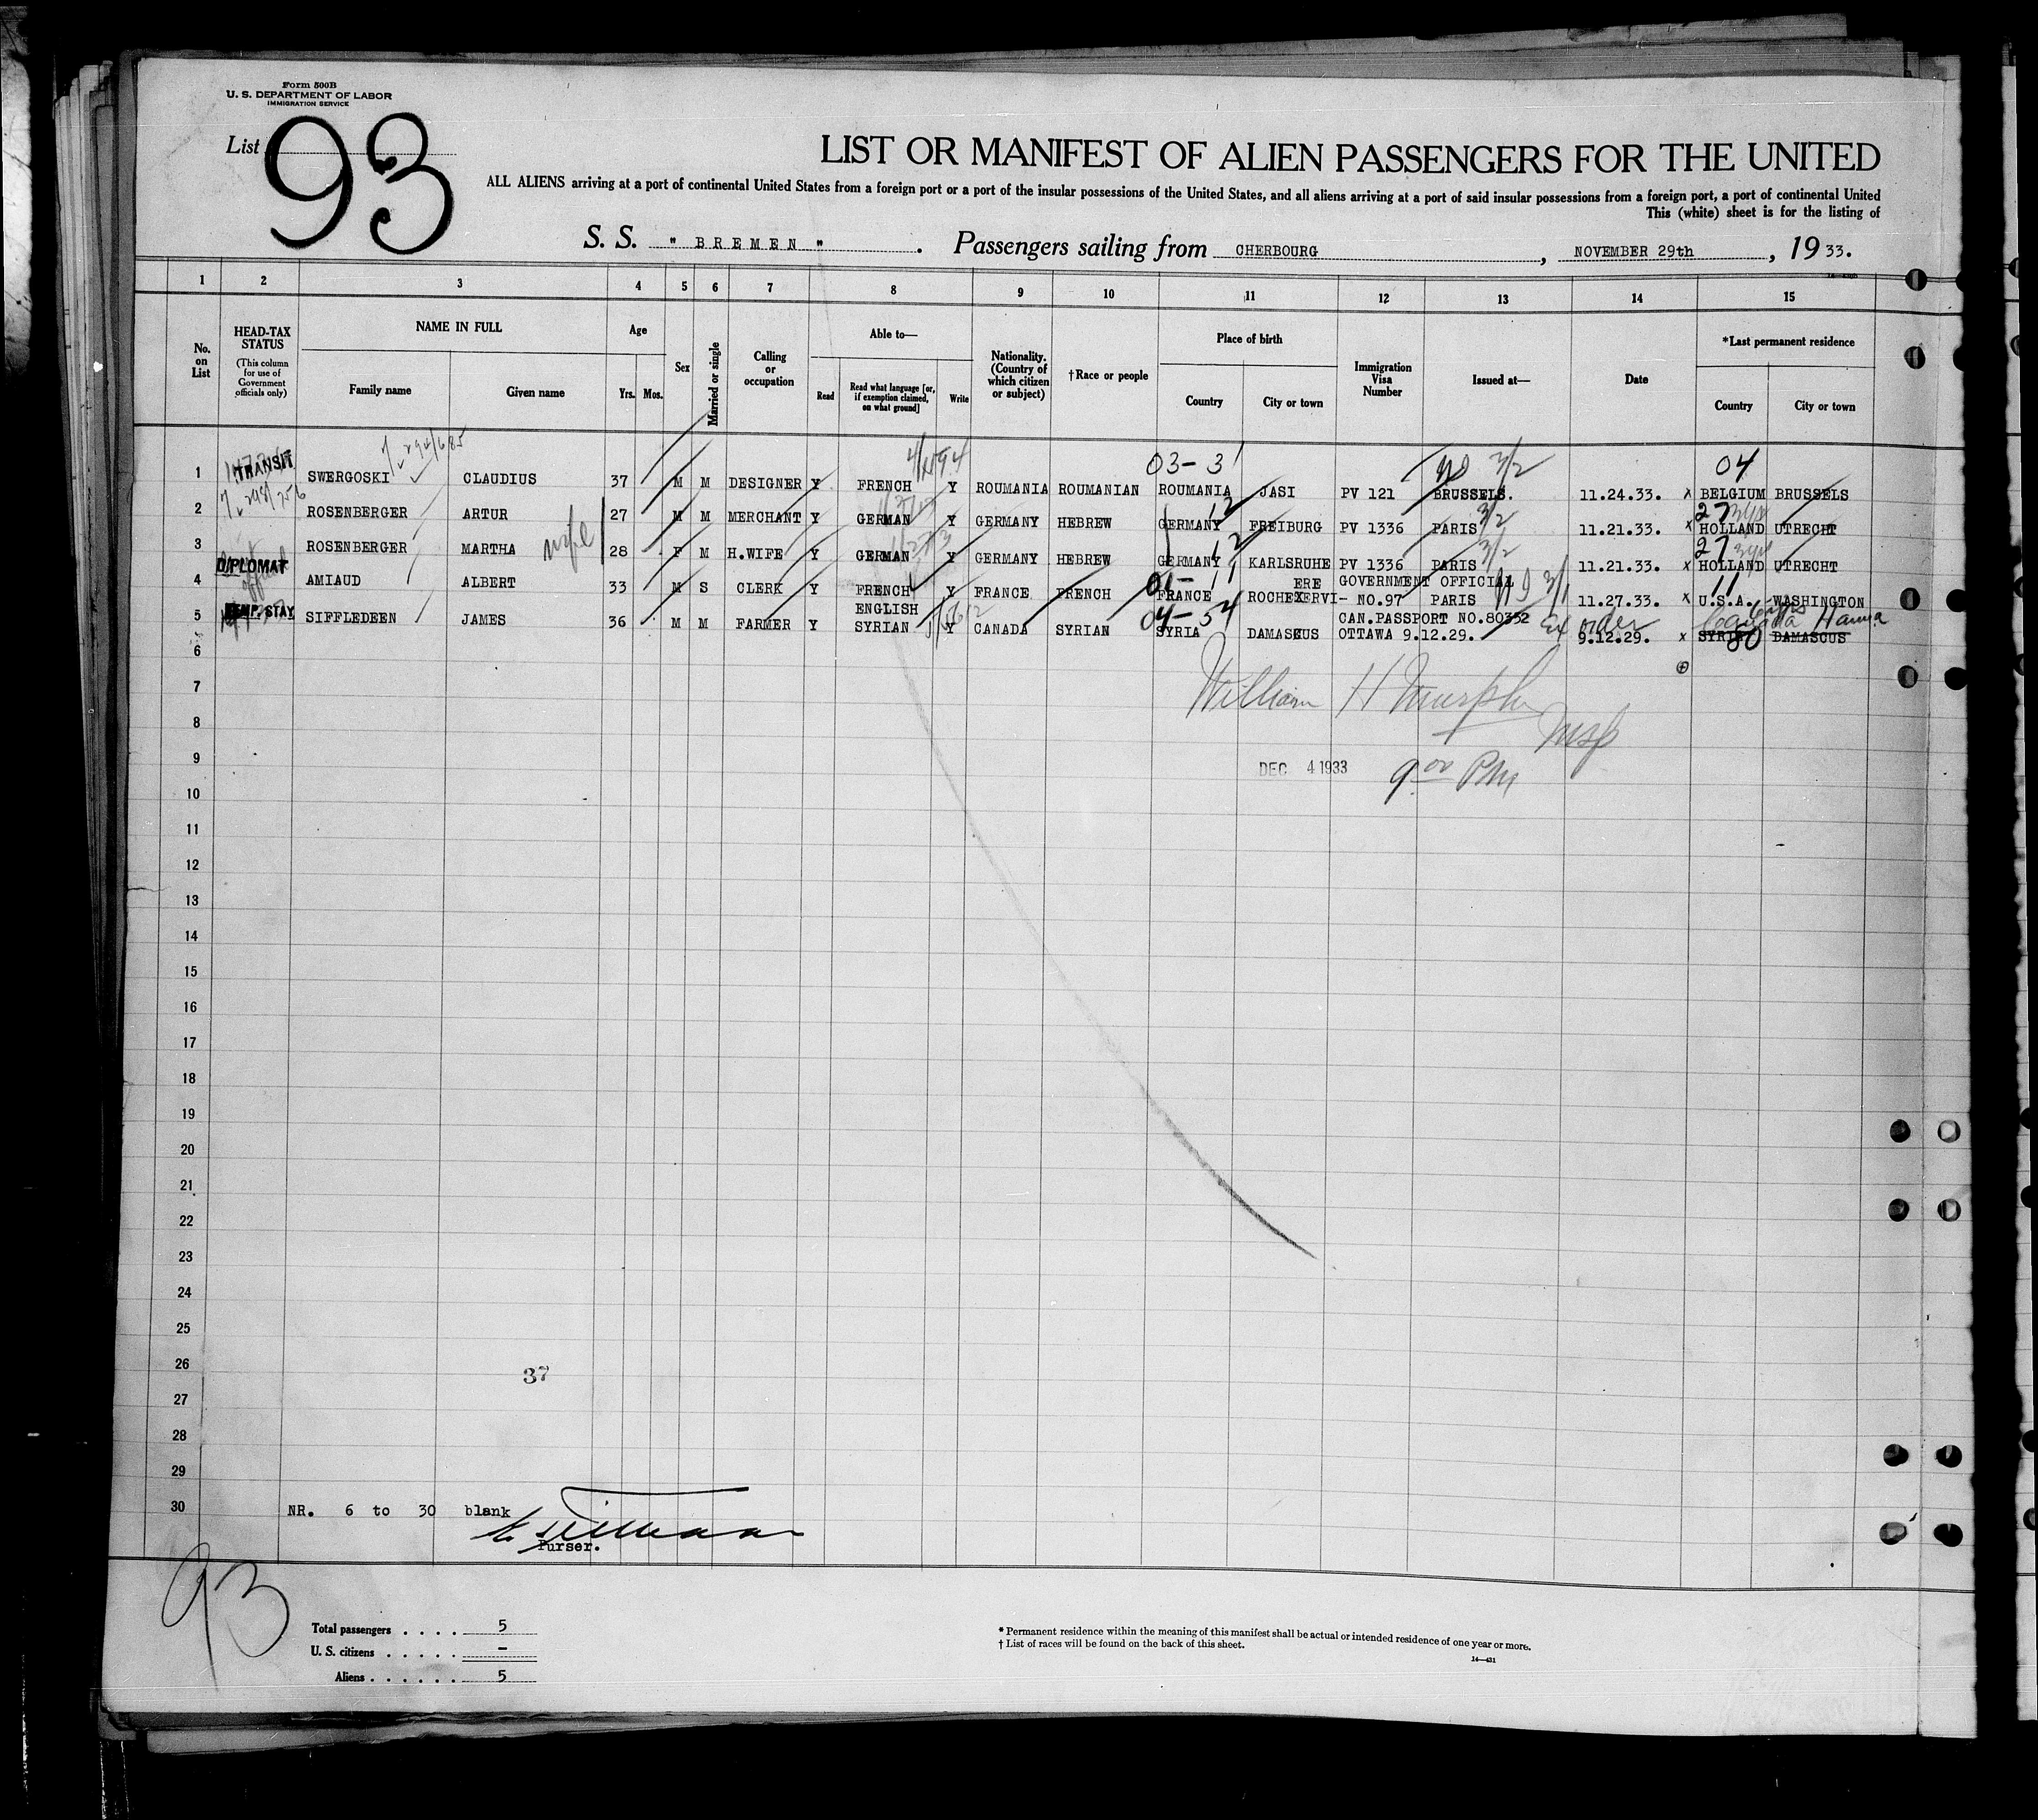 Form 500B
U. S. DEPARTMENT OF LABOR
IMMIGRATION SERVICE
List 93
LIST OR MANIFEST OF ALIEN PASSENGERS FOR THE UNITED
ALL ALIENS arriving at a port of continental United States from a foreign port or a port of the insular possessions of the United States, and all aliens arriving at a port of said insular possessions from a foreign port, a port of continental United
This (white) sheet is for the listing of
S. S. " BREMEN " . Passengers sailing from CHERBOURG , NOVEMBER 29th , 19 33.
1 2 3 4 5 6 7 8 9 10 11 12 13 14 15
No. on List
HEAD-TAX STATUS
(This column for use of Government officials only)
NAME IN FULL
Family name Given name
Age
Yrs. Mos.
Sex
Married or single
Calling or occupation
Able to—
Read
Read what language [or, if exemption claimed, on what ground]
Write
Nationality. (Country of which citizen or subject)
†Race or people
Place of birth
Country City or town
Immigration Visa Number
Issued at—
Date
*Last permanent residence
Country City or town
03-3 3/2 04
1 TRANSIT SWERGOSKI CLAUDIUS 37 M M DESIGNER Y FRENCH Y ROUMANIA ROUMANIAN ROUMANIA JASI PV 121 BRUSSELS. 11.24.33. x BELGIUM BRUSSELS
12 3/2 27
2 ROSENBERGER ARTUR 27 M M MERCHANT Y GERMAN Y GERMANY HEBREW GERMANY FREIBURG PV 1336 PARIS 11.21.33. x HOLLAND UTRECHT
wife 12 3/2 27
3 ROSENBERGER MARTHA 28 F M H.WIFE Y GERMAN Y GERMANY HEBREW GERMANY KARLSRUHE PV 1336 PARIS 11.21.33. x HOLLAND UTRECHT
DIPLOMAT
01-11 ERE GOVERNMENT OFFICIAL 3/1 11
4 AMIAUD ALBERT 33 M S CLERK Y FRENCH Y FRANCE FRENCH FRANCE ROCHEXERVI- NO.97 PARIS 11.27.33. x U.S.A. WASHINGTON
TEMP. STAY ENGLISH 04-54 CAN.PASSPORT NO.80352 Canada
5 SIFFLEDEEN JAMES 36 M M FARMER Y SYRIAN Y CANADA SYRIAN SYRIA DAMASCUS OTTAWA 9.12.29. 9.12.29. x SYRIA DAMASCUS
80
6
7 William H Murphy
8 Insp
9 DEC 4 1933 9 00 PM
10
11
12
13
14
15
16
17
18
19
20
21
22
23
24
25
26 37
27
28
29
30 NR. 6 to 30 blank
Purser.
93
Total passengers . . . . 5
U. S. citizens . . . . . –
Aliens . . . . . . 5
* Permanent residence within the meaning of this manifest shall be actual or intended residence of one year or more.
† List of races will be found on the back of this sheet.
14—431